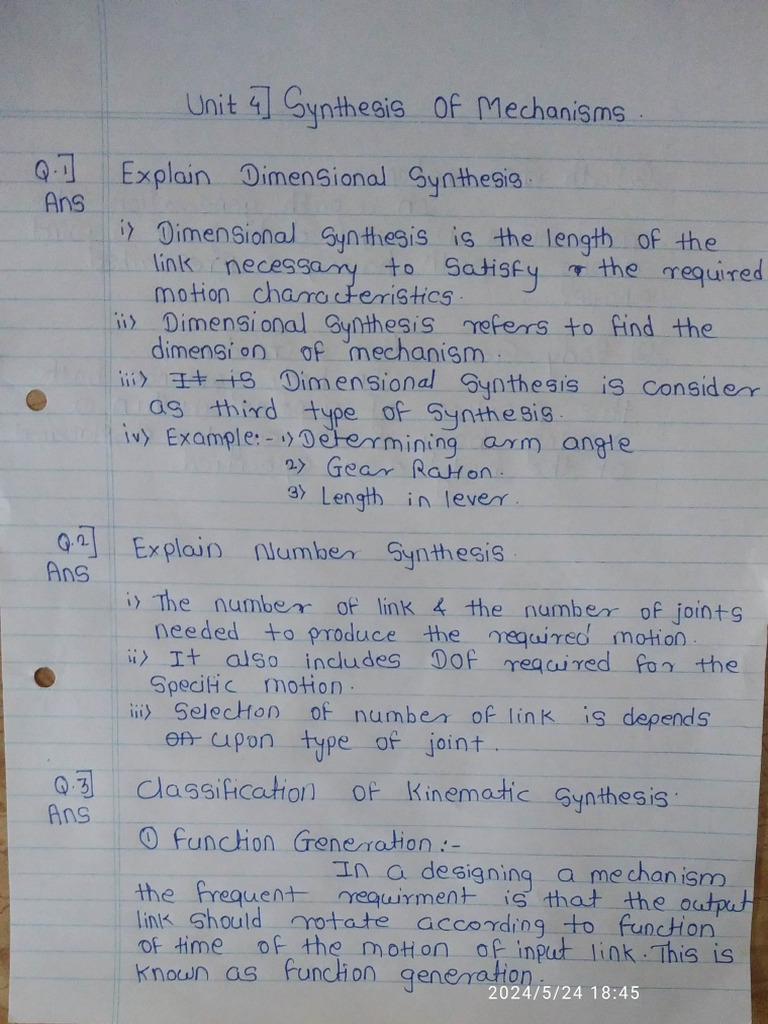 Unit 4] Synthesis Of Mechanisms.
Q.1] Explain Dimensional Synthesis.
Ans
i) Dimensional Synthesis is the length of the
link necessary to Satisfy the required
motion characteristics.
ii) Dimensional Synthesis refers to find the
dimension of mechanism.
iii) It is Dimensional Synthesis is consider
as third type of Synthesis.
iv) Example:- 1) Determining arm angle
2) Gear Ration.
3) Length in lever.
Q.2] Explain Number Synthesis.
Ans
i) The number of link & the number of joints
needed to produce the required motion.
ii) It also includes DOF required for the
Specific motion.
iii) Selection of number of link is depends
on upon type of joint.
Q.3] Classification of Kinematic Synthesis.
Ans
① Function Generation:-
In a designing a mechanism
the frequent requirment is that the output
link should rotate according to function
of time of the motion of input link. This is
known as function generation.
2024/5/24 18:45